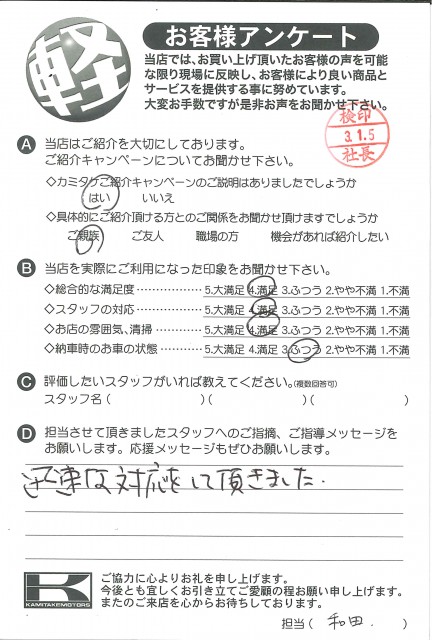 軽
お客様アンケート
当店では、お買い上げ頂いたお客様の声を可能
な限り現場に反映し、お客様により良い商品と
サービスを提供する事に努めています。
大変お手数ですが是非お声をお聞かせ下さい。
検印
3.1.5
社長
A 当店はご紹介を大切にしております。
ご紹介キャンペーンについてお聞かせ下さい。
◇カミタケご紹介キャンペーンのご説明はありましたでしょうか
はい いいえ
◇具体的にご紹介頂ける方とのご関係をお聞かせ頂けますでしょうか
ご親族 ご友人 職場の方 機会があれば紹介したい
B 当店を実際にご利用になった印象をお聞かせ下さい。
◇総合的な満足度………………5.大満足 4.満足 3.ふつう 2.やや不満 1.不満
◇スタッフの対応………………5.大満足 4.満足 3.ふつう 2.やや不満 1.不満
◇お店の雰囲気、清掃…………5.大満足 4.満足 3.ふつう 2.やや不満 1.不満
◇納車時のお車の状態…………5.大満足 4.満足 3.ふつう 2.やや不満 1.不満
C 評価したいスタッフがいれば教えてください。(複数回答可)
スタッフ名( )( )( )
D 担当させて頂きましたスタッフへのご指摘、ご指導メッセージを
お願いします。応援メッセージもぜひお願いします。
迅速な対応をして頂きました.
K
KAMITAKEMOTORS
ご協力に心よりお礼を申し上げます。
今後とも宜しくお引き立てご愛顧の程お願い申し上げます。
またのご来店を心からお待ちしております。
担当( 和田. )